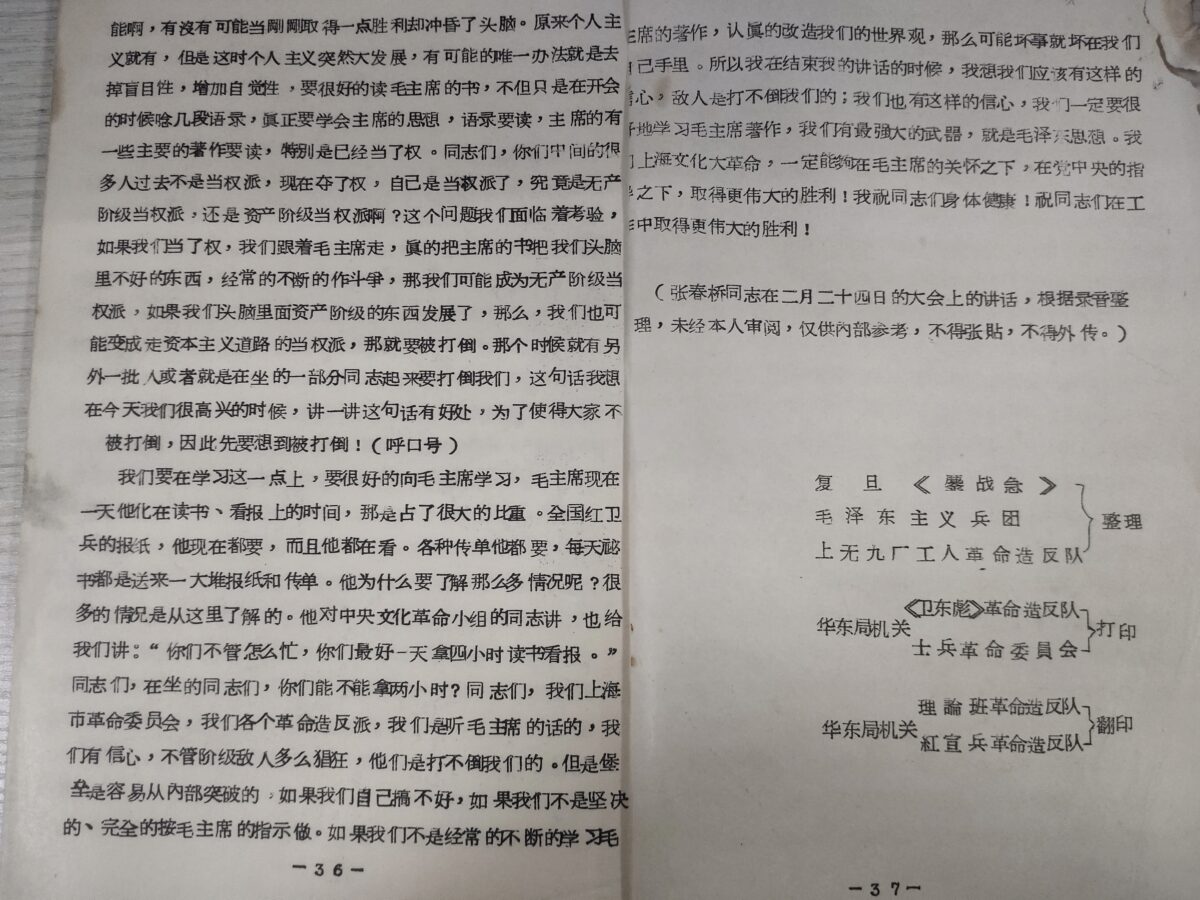 能啊，有沒有可能当剛剛取得一点胜利却冲昏了头脑。原来个人主
义就有，但是这时个人主义突然大发展，有可能的唯一办法就是去
掉盲目性，增加自觉性，要很好的读毛主席的书，不但只是在开会
的时候唸几段语录，眞正要学会主席的思想，语录要读，主席的有
一些主要的著作要读，特别是已经当了权。同志们，你们中间的很
多人过去不是当权派，现在夺了权，自己是当权派了，究竟是无产
阶级当权派，还是资产阶级当权派啊？这个问题我们面临着考验，
如果我们当了权，我们跟着毛主席走，眞的把主席的书把我们头脑
里不好的东西，经常的不断的作斗爭，那我们可能成为无产阶级当
权派，如果我们头脑里面资产阶级的东西发展了，那么，我们也可
能变成走资本主义道路的当权派，那就要被打倒。那个时候就有另
外一批人或者就是在坐的一部分同志起来要打倒我们，这句话我想
在今天我们很高兴的时候，讲一讲这句话有好处，为了使得大家不
被打倒，因此先要想到被打倒！（呼口号）
我们要在学习这一点上，要很好的向毛主席学习，毛主席现在
一天他化在读书、看报上的时间，那是占了很大的比重。全国红卫
兵的报纸，他现在都要，而且他都在看。各种传单他都要，每天祕
书都是送来一大堆报纸和传单。他为什么要了解那么多情况呢？很
多的情况是从这里了解的。他对中央文化革命小组的同志讲，也给
我们讲：“你们不管怎么忙，你们最好一天拿四小时读书看报。”
同志们，在坐的同志们，你们能不能拿两小时？同志们，我们上海
市革命委员会，我们各个革命造反派，我们是听毛主席的话的，我
们有信心，不管阶级敌人多么猖狂，他们是打不倒我们的。但是堡
垒是容易从內部突破的，如果我们自己搞不好，如果我们不是坚决
的、完全的按毛主席的指示做。如果我们不是经常的不断的学习毛
－36－
主席的著作，认眞的改造我们的世界观，那么可能坏事就坏在我们
自己手里。所以我在结束我的讲话的时候，我想我们应该有这样的
信心，敌人是打不倒我们的；我们也有这样的信心，我们一定要很
好地学习毛主席著作，我们有最强大的武器，就是毛泽东思想。我
们上海文化大革命，一定能夠在毛主席的关怀之下，在党中央的指
导之下，取得更伟大的胜利！我祝同志们身体健康！祝同志们在工
作中取得更伟大的胜利！
（张春桥同志在二月二十四日的大会上的讲话，根据录音整
理，未经本人审阅，仅供內部参考，不得张貼，不得外传。）
复旦《曇战急》
毛泽东主义兵团
上无九厂工人革命造反队
整理
《卫东彪》革命造反队
华东局机关
士兵革命委員会
打印
理論班革命造反队
华东局机关
紅宣兵革命造反队
翻印
－37－